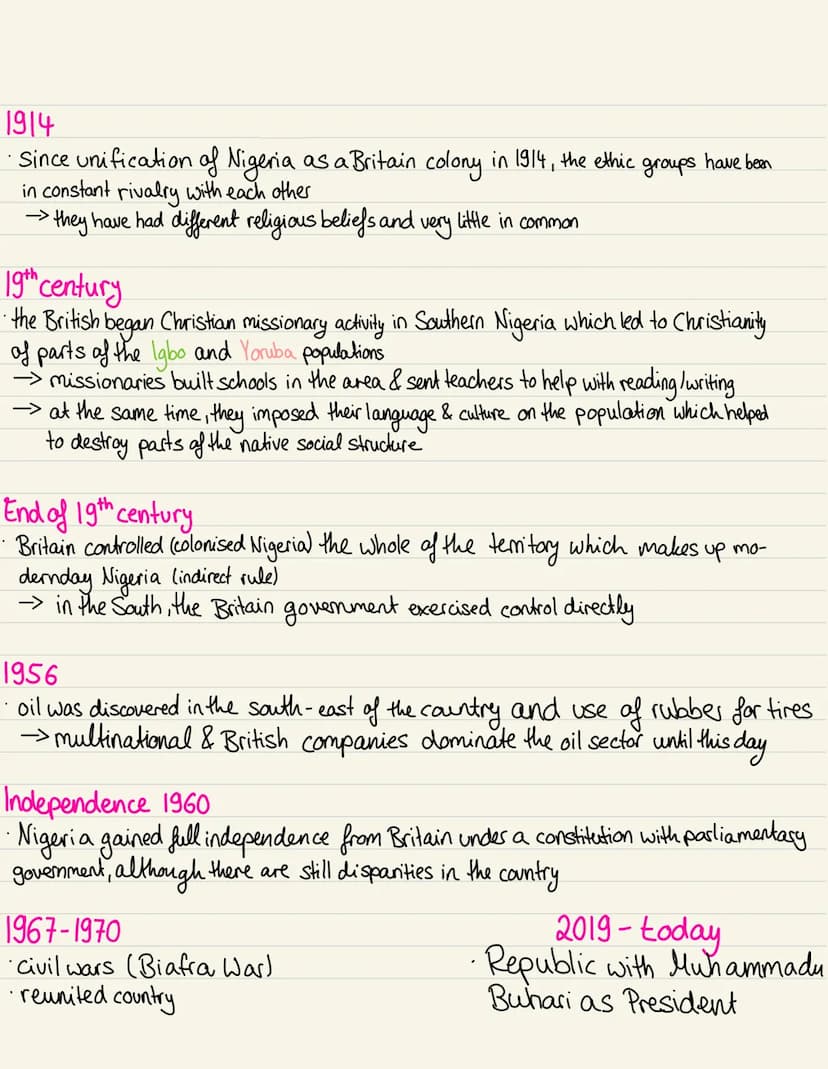 1914
· Since unification of Nigeria as a Britain colony in 1914, the ethic groups have been
in constant rivalry with each other
→ they have had different religious beliefs and very little in common
19th century
· the British began Christian missionary activity in Southern Nigeria which led to Christianity
of parts of the Igbo and Yoruba populations
→ missionaries built schools in the area & sent teachers to help with reading/writing
→ at the same time, they imposed their language & culture on the population which helped
to destroy parts of the native social structure
End of 19th century
· Britain controlled (colonised Nigeria) the whole of the territory which makes up mo-
dernday Nigeria (indirect rule)
→ in the South, the Britain government exercised control directly
1956
· oil was discovered in the south-east of the country and use of rubber for tires
→ multinational & British companies dominate the oil sector until this day
Independence 1960
· Nigeria gained full independence from Britain under a constitution with parliamentary
government, although there are still disparities in the country
1967-1970
· civil wars (Biafra War)
· reunited country
2019 - today
· Republic with Muhammadu
Buhari as President